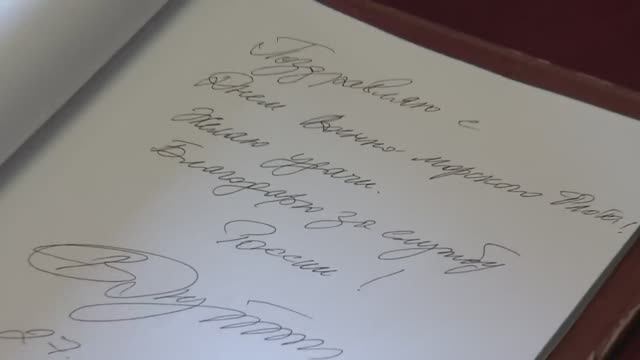 Поздравляю с
Днем Военно морского Флота!
Желаю удачи.
Благодарю за службу
России!
В Путин
27.